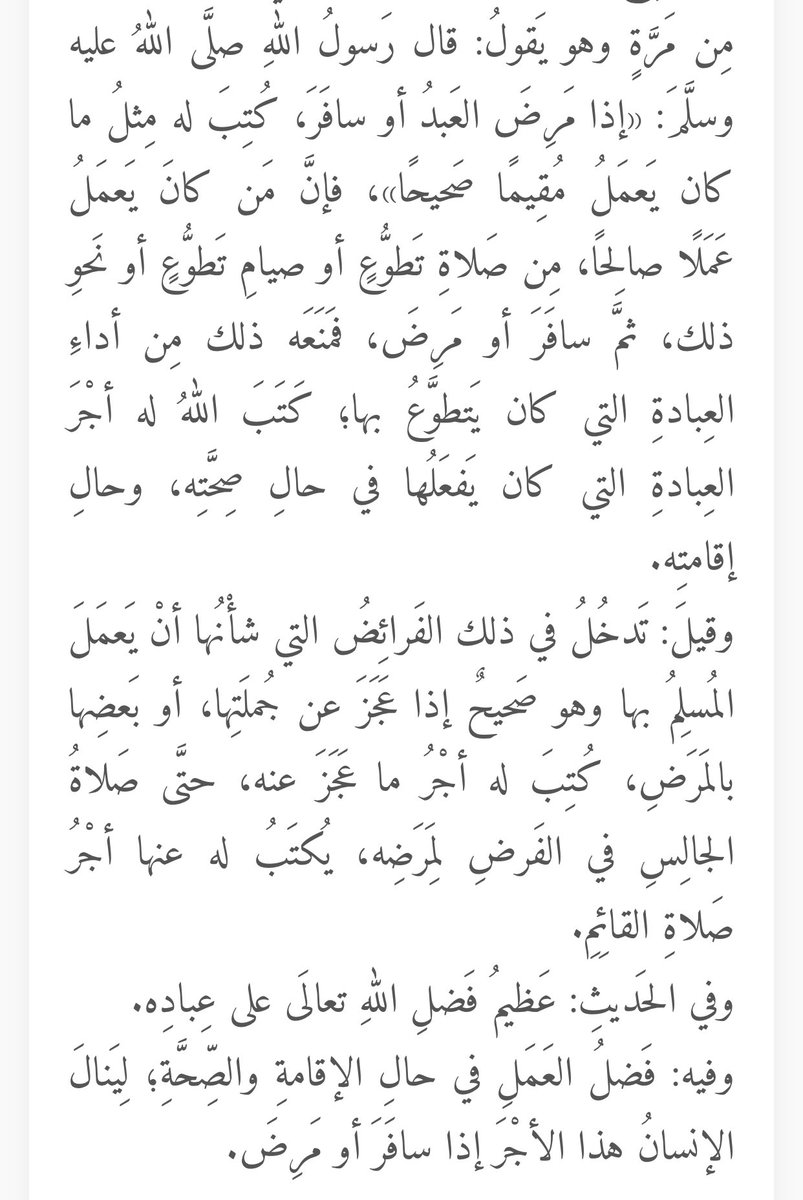 مِن مَرَّةٍ وهو يَقولُ: قال رَسولُ اللهِ صلَّى اللهُ عليه
وسلَّمَ: «إذا مَرِضَ العَبدُ أو سافَرَ، كُتِبَ له مِثلُ ما
كان يَعمَلُ مُقِيمًا صَحيحًا»، فإنَّ مَن كانَ يَعمَلُ
عَمَلًا صالِحًا، مِن صَلاةِ تَطوُّعٍ أو صيامِ تَطوُّعٍ أو نَحوِ
ذلك، ثمَّ سافَرَ أو مَرِضَ، فمَنَعَه ذلك مِن أداءِ
العِبادةِ التي كان يَتطوَّعُ بها؛ كَتَبَ اللهُ له أجْرَ
العِبادةِ التي كان يَفعَلُها في حالِ صِحَّتِه، وحالِ
إقامتِه.
وقيلَ: تَدخُلُ في ذلك الفَرائِضُ التي شأْنُها أنْ يَعمَلَ
المُسلِمُ بها وهو صَحيحٌ إذا عَجَزَ عن جُملَتِها، أو بَعضِها
بالمَرَضِ، كُتِبَ له أجْرُ ما عَجَزَ عنه، حتَّى صَلاةُ
الجالِسِ في الفَرضِ لِمَرَضِه، يُكتَبُ له عنها أجْرُ
صَلاةِ القائِمِ.
وفي الحَديثِ: عَظيمُ فَضلِ اللهِ تعالَى على عِبادِه.
وفيه: فَضلُ العَمَلِ في حالِ الإقامةِ والصِّحَّةِ؛ لِيَنالَ
الإنسانُ هذا الأجْرَ إذا سافَرَ أو مَرِضَ.